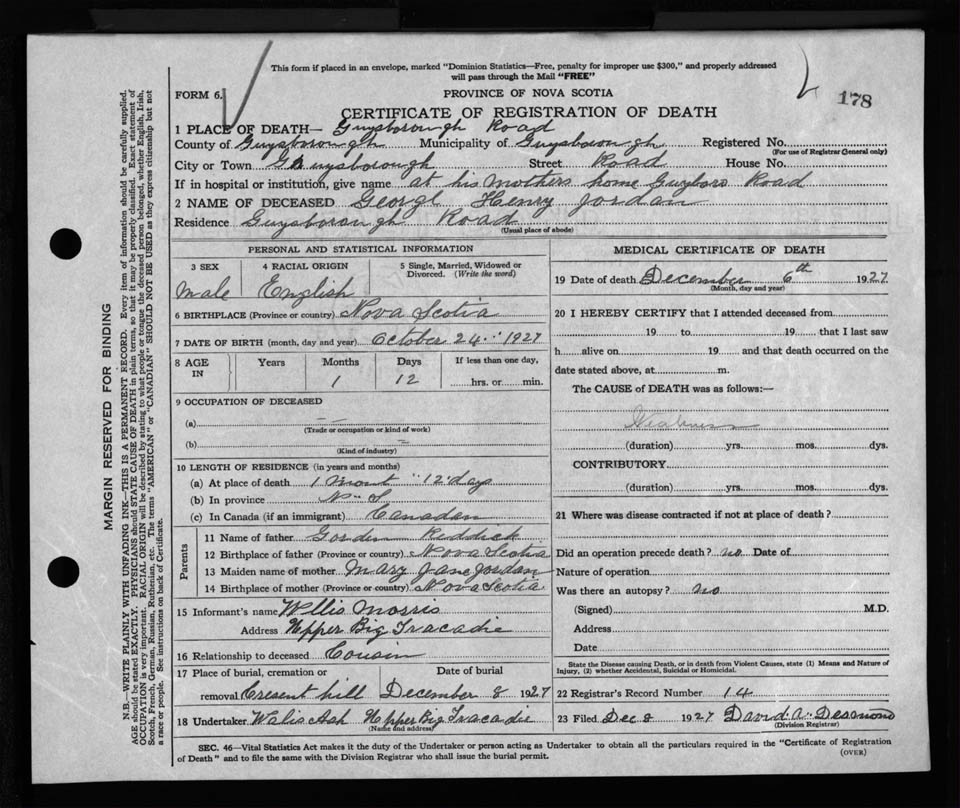 This form if placed in an envelope, marked "Dominion Statistics—Free, penalty for improper use $300," and properly addressed
will pass through the Mail "FREE"
FORM 6.
PROVINCE OF NOVA SCOTIA
178
CERTIFICATE OF REGISTRATION OF DEATH
1 PLACE OF DEATH— Guysborough Road
County of Guysborough Municipality of Guysborough Registered No.
(For use of Registrar General only)
City or Town Guysborough Street Road House No.
If in hospital or institution, give name at his Mothers home Guyboro Road
2 NAME OF DECEASED George Henry Jordan
Residence Guysborough Road
(Usual place of abode)
PERSONAL AND STATISTICAL INFORMATION
3 SEX 4 RACIAL ORIGIN 5 Single, Married, Widowed or
Divorced. (Write the word)
Male English
6 BIRTHPLACE (Province or country) Nova Scotia
7 DATE OF BIRTH (month, day and year) October 24 1927
8 AGE IN Years Months Days If less than one day,
1 12 hrs. or min.
9 OCCUPATION OF DECEASED
(a)
(Trade or occupation or kind of work)
(b)
(Kind of industry)
10 LENGTH OF RESIDENCE (in years and months)
(a) At place of death 1 Mont 12 days
(b) In province N S
(c) In Canada (if an immigrant) Canadan
Parents
11 Name of father Gordin Reddick
12 Birthplace of father (Province or country) Nova Scotia
13 Maiden name of mother Mary Jane Jordan
14 Birthplace of mother (Province or country) Nova Scotia
15 Informant's name Wllis Morris
Address Upper Big Tracadie
16 Relationship to deceased Cousin
17 Place of burial, cremation or Date of burial
removal Cresent hill December 8 1927
18 Undertaker Walis Ash Upper Big Tracadie
(Name and address)
MEDICAL CERTIFICATE OF DEATH
19 Date of death December 6th 1927
(Month, day and year)
20 I HEREBY CERTIFY that I attended deceased from
19 to 19 that I last saw
h alive on 19 and that death occurred on the
date stated above, at m.
The CAUSE of DEATH was as follows:—
Weakness
(duration) yrs. mos. dys.
CONTRIBUTORY
(duration) yrs. mos. dys.
21 Where was disease contracted if not at place of death?
Did an operation precede death? no Date of
Nature of operation
Was there an autopsy? no
(Signed) M.D.
Address
Date
State the Disease causing Death, or in death from Violent Causes, state (1) Means and Nature of
Injury, (2) whether Accidental, Suicidal or Homicidal.
22 Registrar's Record Number 14
23 Filed Dec 8 1927 David A Desmond
(Division Registrar)
SEC. 46—Vital Statistics Act makes it the duty of the Undertaker or person acting as Undertaker to obtain all the particulars required in the "Certificate of Registration
of Death" and to file the same with the Division Registrar who shall issue the burial permit.
(OVER)
MARGIN RESERVED FOR BINDING
N.B.—WRITE PLAINLY WITH UNFADING INK—THIS IS A PERMANENT RECORD. Every item of information should be carefully supplied.
AGE should be stated EXACTLY. PHYSICIANS should STATE CAUSE OF DEATH in plain terms, so that it may be properly classified. Exact statement of
OCCUPATION is very important. RACIAL ORIGIN will be described by stating to what people or tongue the deceased person belonged, whether English, Irish,
Scotch, French, German, Russian, Ruthenian, etc. The terms "AMERICAN" or "CANADIAN" SHOULD NOT BE USED as they express citizenship but not
a race or people. See instructions on back of Certificate.